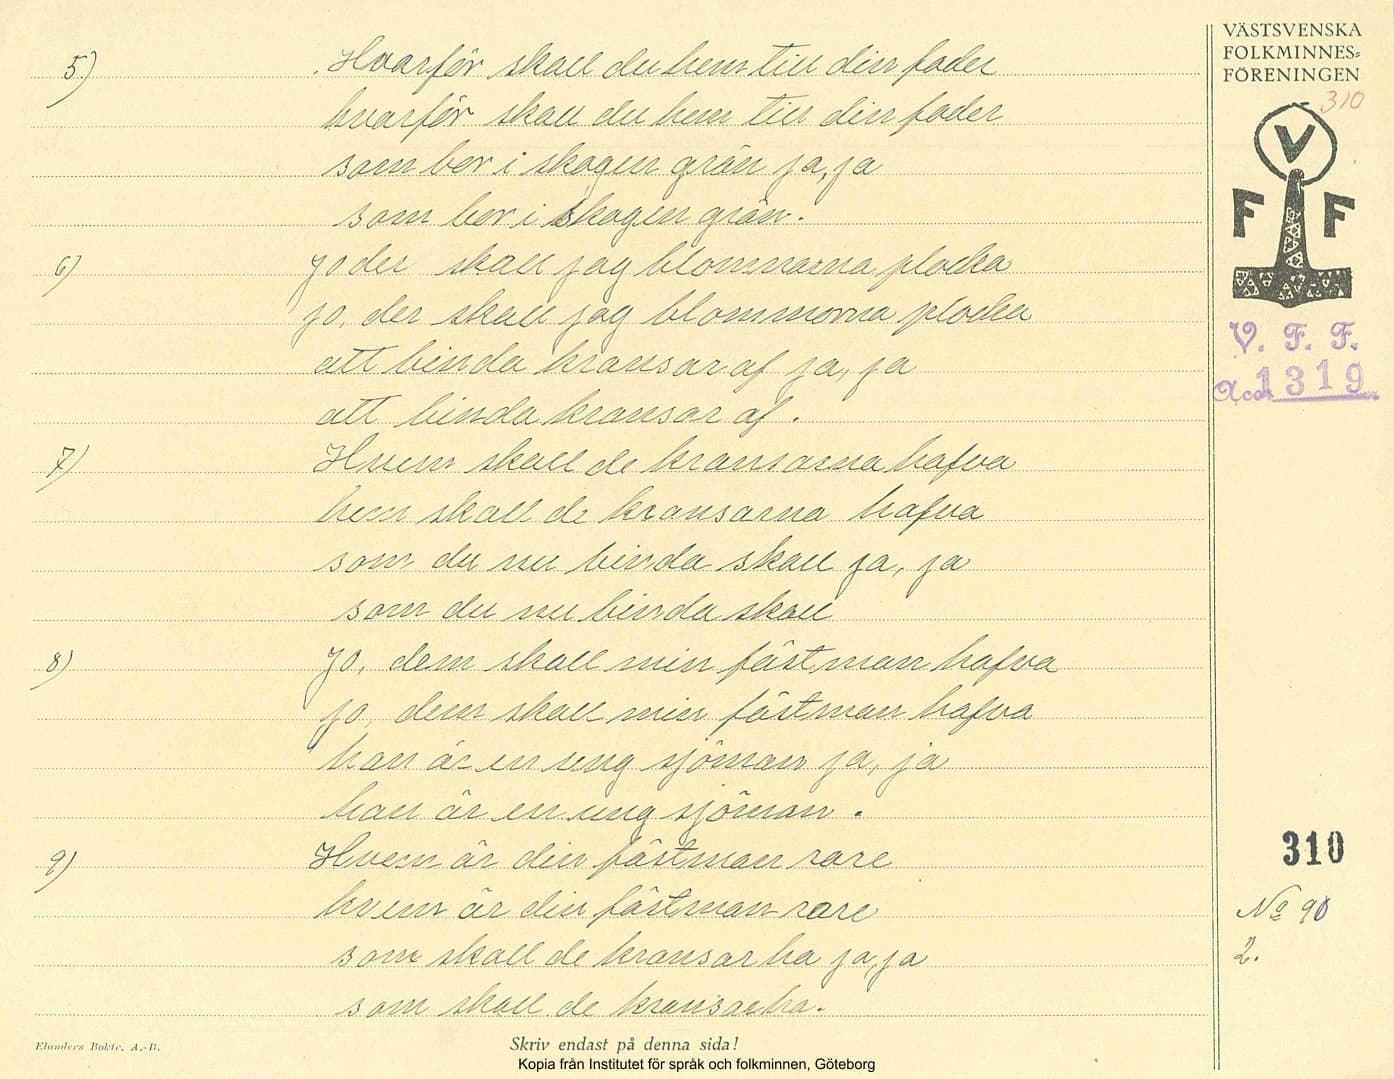 5.) Hvarför skall du hem till din fader
hvarför skall du hem till din fader
som bor i skogen grön ja, ja
som bor i skogen grön.
6) Jo der skall jag blommorna plocka
jo, der skall jag blommorna plocka
att binda kransar af ja, ja
att binda kransar af.
7) Hvem skall de kransarna hafva
hem skall de kransarna hafva
som du nu binda skall ja, ja
som du nu binda skall
8) Jo, dem skall min fästman hafva
jo, dem skall min fästman hafva
han är en ung sjöman ja, ja
han är en ung sjöman.
9) Hvem är din fästman rare
hvem är din fästman rare
som skall de kransar ha ja, ja
som skall de kransar ha.
VÄSTSVENSKA
FOLKMINNES-
FÖRENINGEN
310
V
F F
V. F. F.
Acc. 1319
310
No 90
2.
Elanders Boktr. A.-B.
Skriv endast på denna sida!
Kopia från Institutet för språk och folkminnen, Göteborg